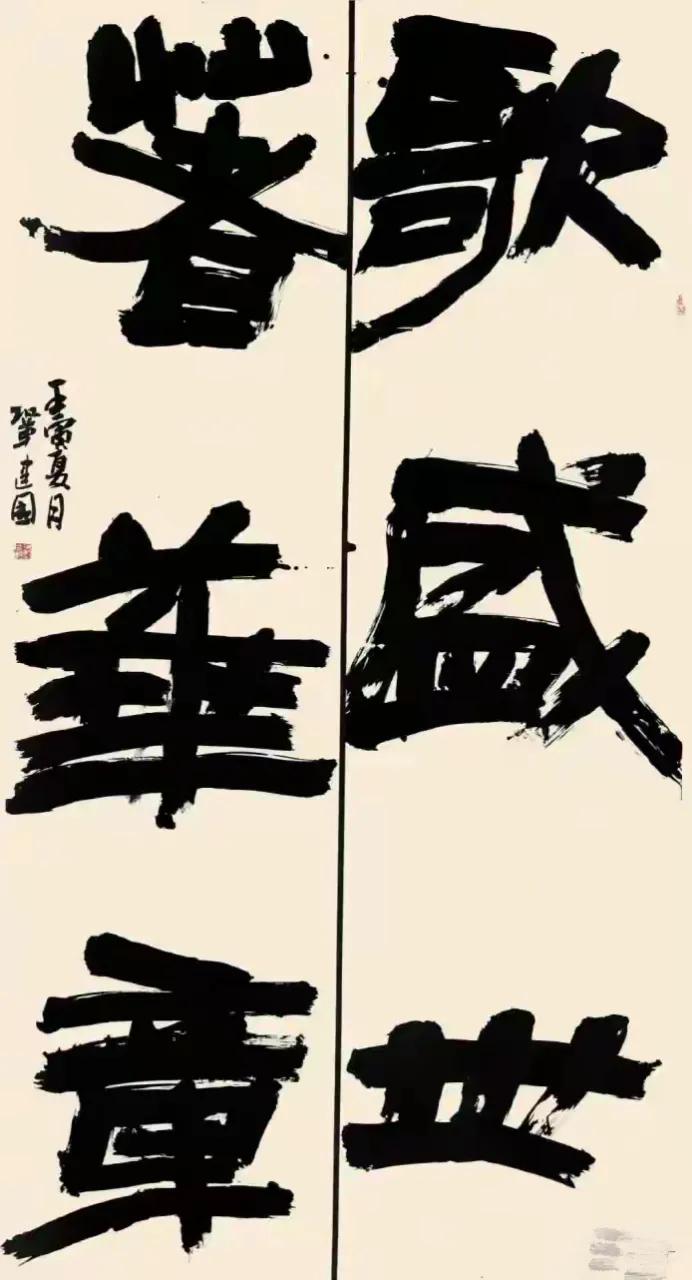 歌盛世
著華章
壬寅夏月
鞏建國